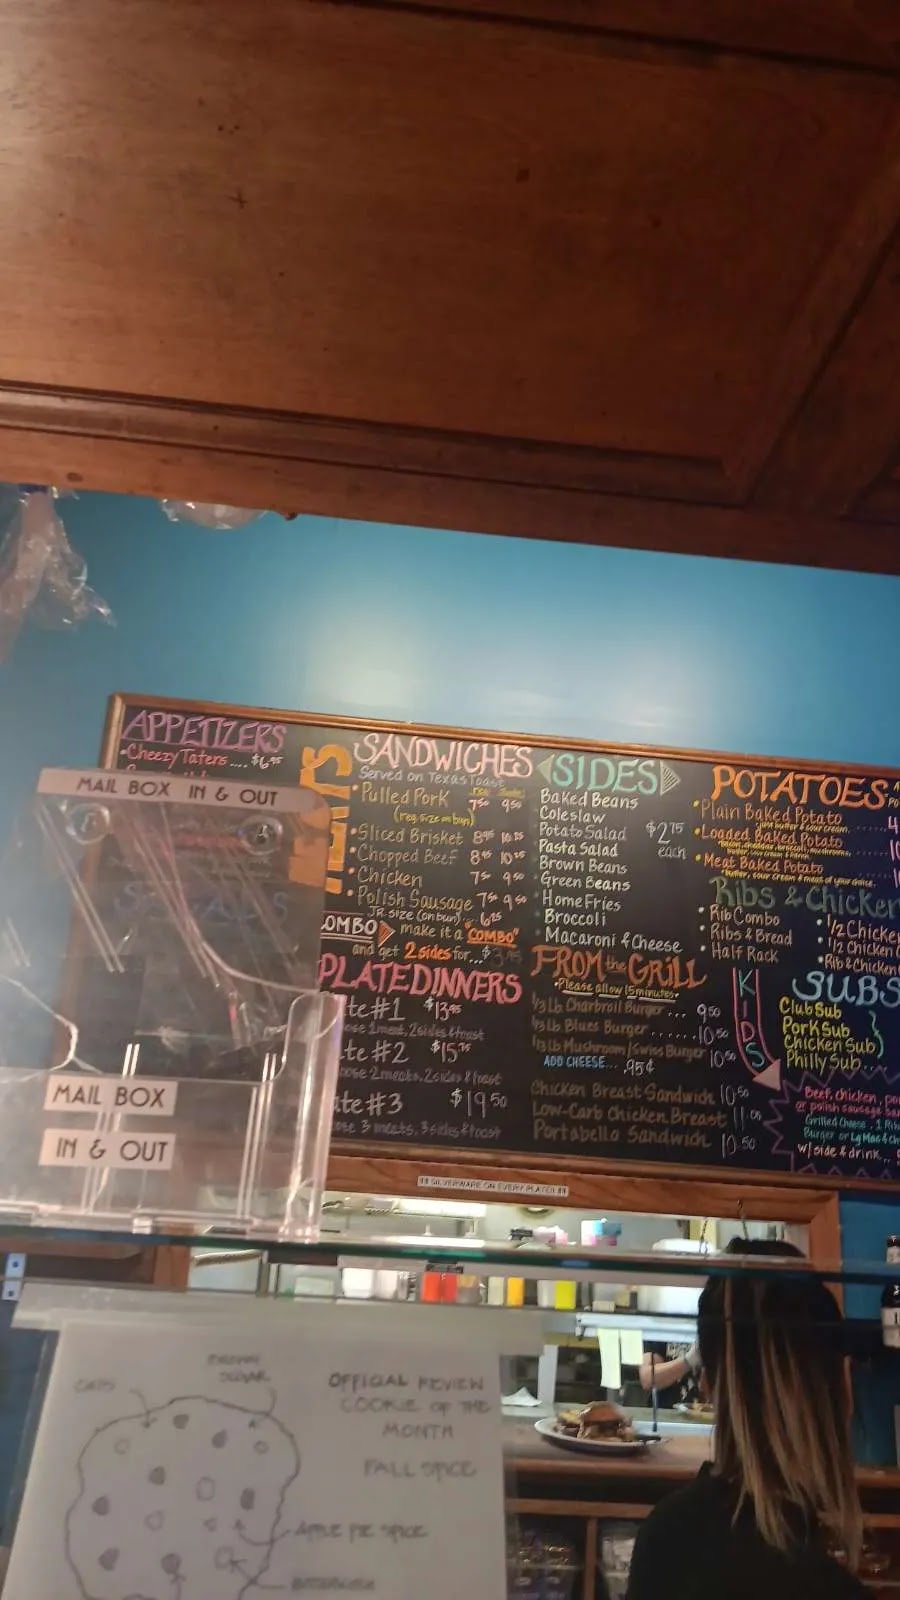 APPETIZERS
•Cheezy Taters .... $6.95
MAIL BOX IN & OUT
MAIL BOX
IN & OUT
SANDWICHES
Served on Texas Toast
•Pulled Pork 7.50 9.50
(reg. size on bun)
•Sliced Brisket 8.95
•Chopped Beef 8.95
•Chicken 7.50 9.50
•Polish Sausage 7.50 9.50
JR. size (on bun)... 6.25
COMBO make it a "COMBO"
and get 2 sides for...
PLATE DINNERS
#1 $13.95
1 meat, 2 sides & toast
#2 $15.75
2 meats, 2 sides & toast
#3 $19.50
3 meats, 3 sides & toast
SIDES
Baked Beans
Coleslaw
Potato Salad $2.75
Pasta Salad each
Brown Beans
Green Beans
Home Fries
Broccoli
Macaroni & Cheese
FROM the GRILL
•Please allow 15 minutes•
1/3 Lb Charbroil Burger ... 9.50
1/3 Lb Blues Burger ...... 10.50
1/3 Lb Mushroom/Swiss Burger 10.50
ADD CHEESE... .95¢
Chicken Breast Sandwich 10.50
Low-Carb Chicken Breast
Portabello Sandwich 10.50
POTATOES
•Plain Baked Potato
just butter & sour cream.
•Loaded Baked Potato
•Meat Baked Potato
butter, sour cream & meat of your choice.
Ribs & Chicken
•Rib Combo
•Ribs & Bread
•Half Rack
•1/2 Chicken
•1/2 Chicken
•Rib & Chicken
KIDS
SUBS
Club Sub
Pork Sub
Chicken Sub
Philly Sub...
Beef, chicken,
or polish sausage
Grilled Cheese, 1
Burger or Lg Mac &
w/ side & drink...
SILVERWARE ON EVERY PLATE!
OATS
BROWN
SUGAR
OFFICIAL REVIEW
COOKIE OF THE
MONTH
FALL SPICE
APPLE PIE SPICE